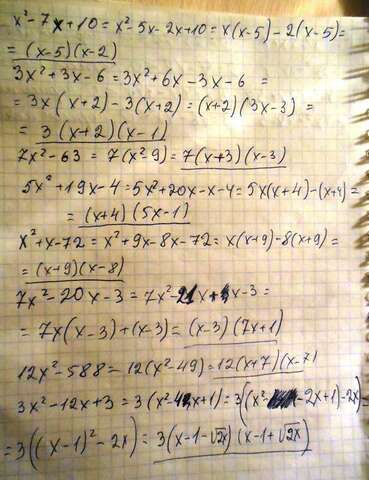 x² - 7x + 10 = x² - 5x - 2x + 10 = x(x-5) - 2(x-5) =
= (x-5)(x-2)
3x² + 3x - 6 = 3x² + 6x - 3x - 6 =
= 3x(x+2) - 3(x+2) = (x+2)(3x-3) =
= 3(x+2)(x-1)
7x² - 63 = 7(x²-9) = 7(x+3)(x-3)
5x² + 19x - 4 = 5x² + 20x - x - 4 = 5x(x+4) - (x+4) =
= (x+4)(5x-1)
x² + x - 72 = x² + 9x - 8x - 72 = x(x+9) - 8(x+9) =
= (x+9)(x-8)
7x² - 20x - 3 = 7x² - 21x + x - 3 =
= 7x(x-3) + (x-3) = (x-3)(7x+1)
12x² - 588 = 12(x²-49) = 12(x+7)(x-7)
3x² - 12x + 3 = 3(x²-4x+1) = 3((x² - 2x+1) - 2x) =
= 3((x-1)² - 2x) = 3(x-1-√2x)(x-1+√2x)